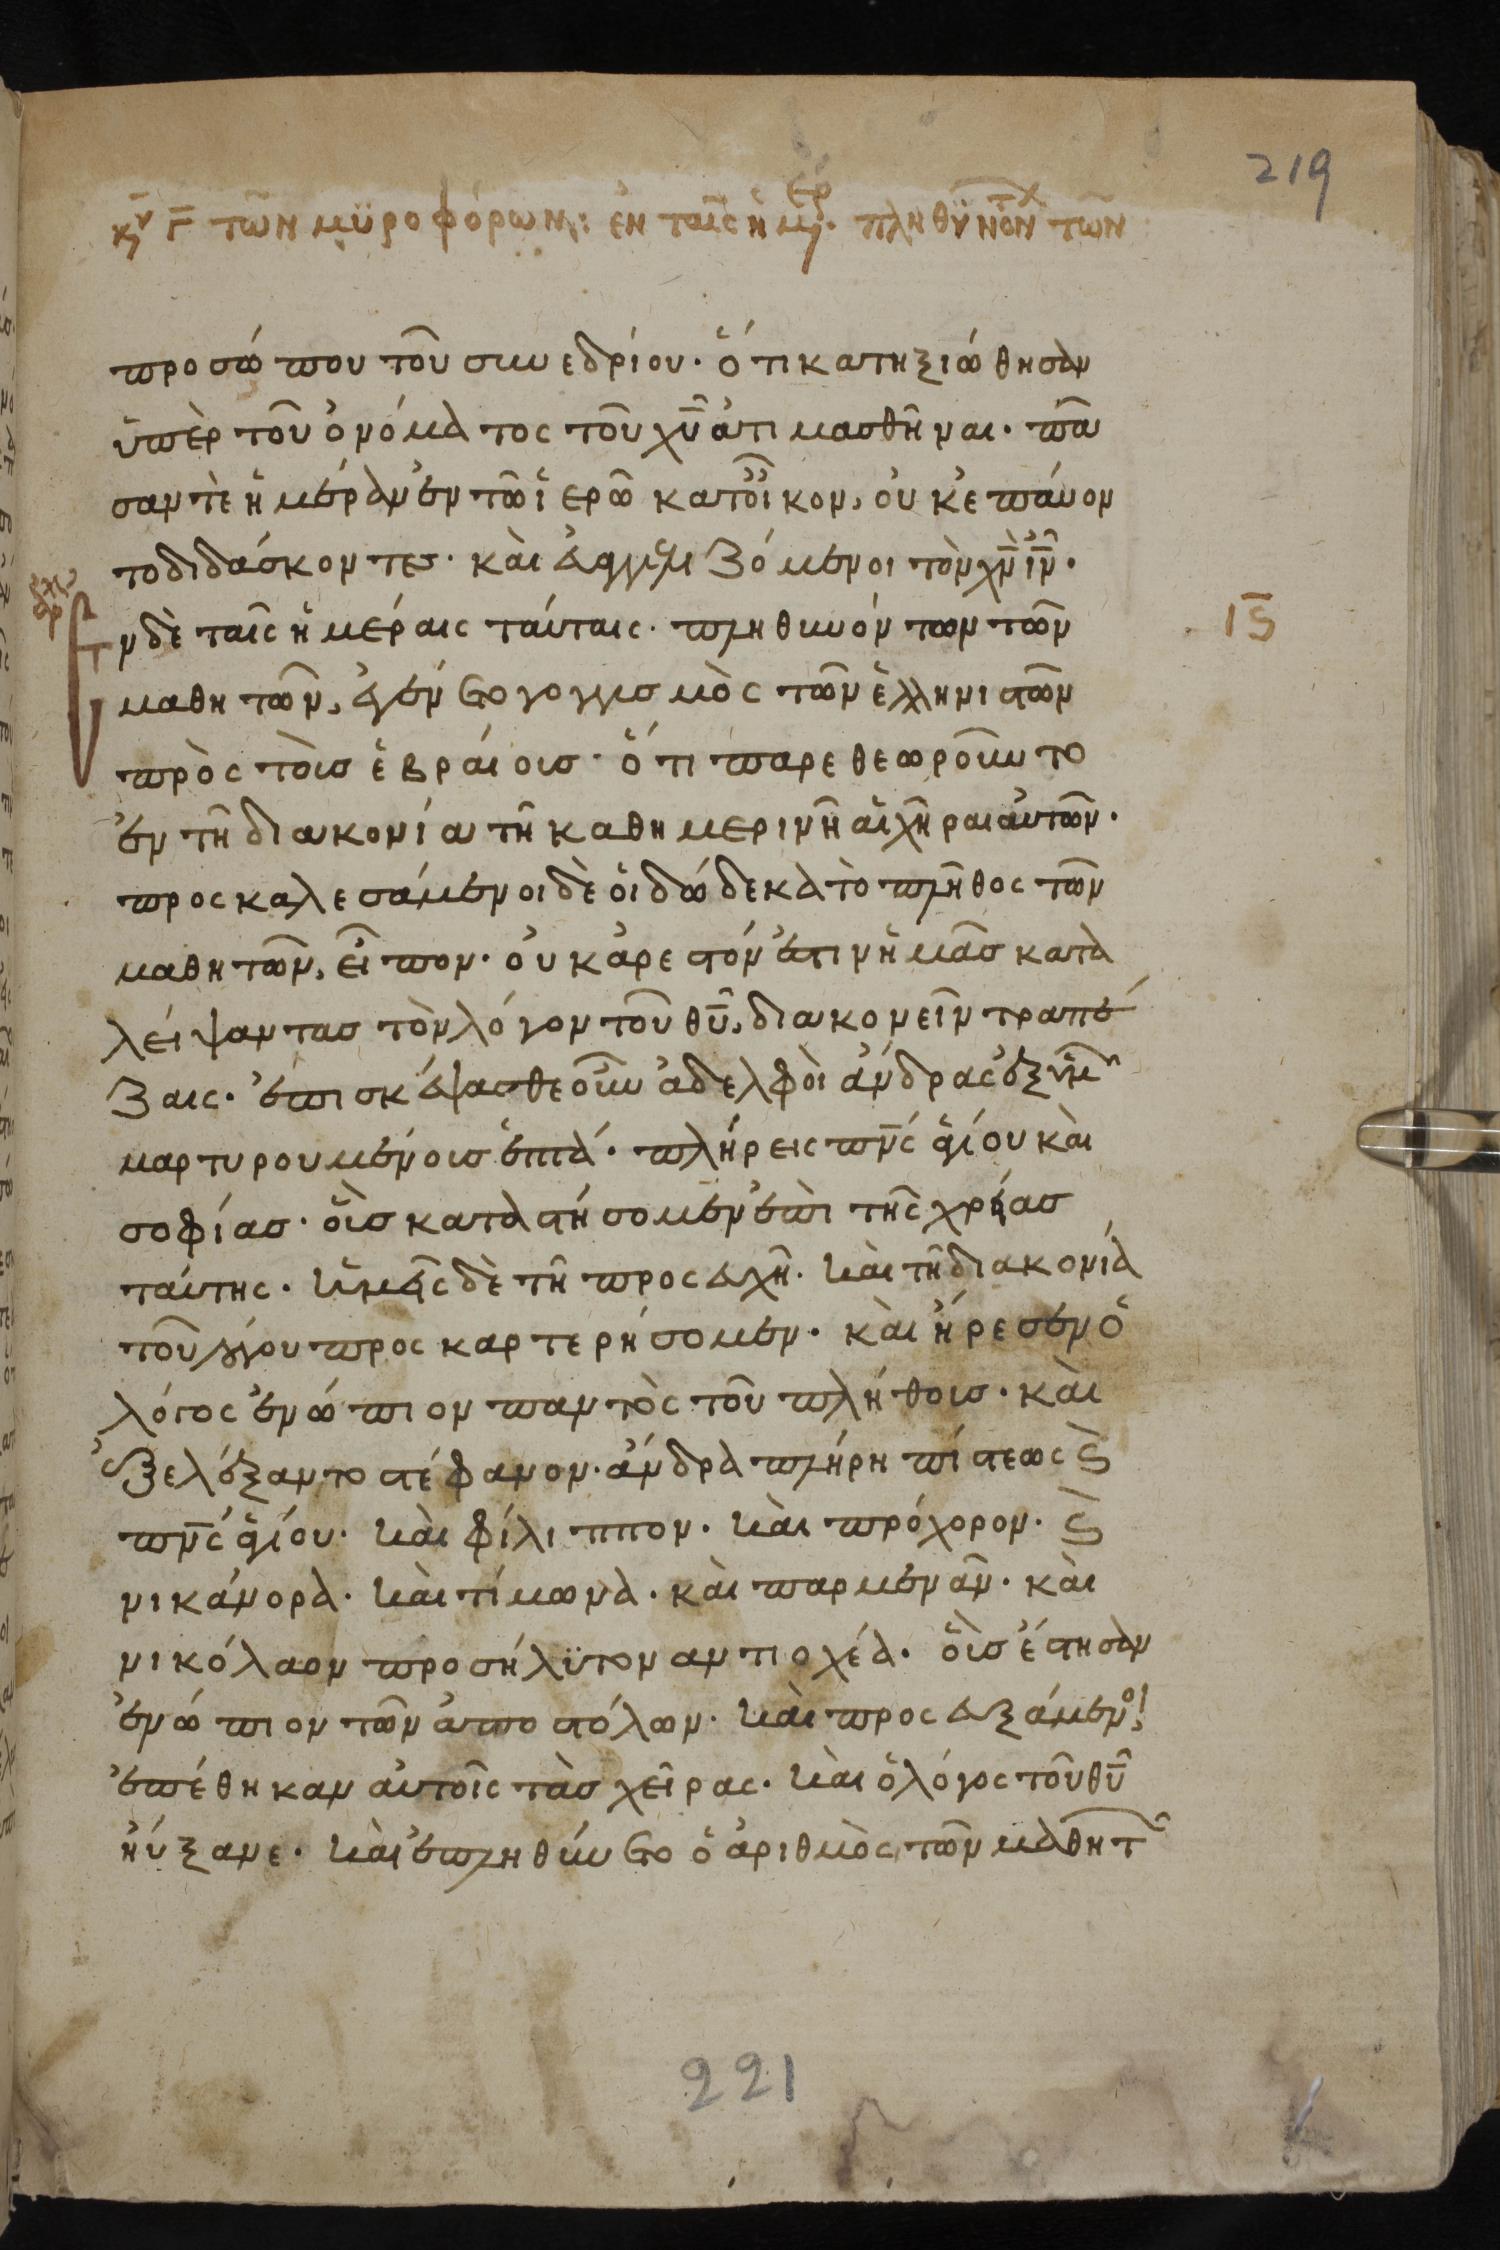 219
κυ Γ τῶν μϋροφόρων: ἐν ταῖς ἡμερ. πληθϋνόντχ τῶν
προσώπου τοῦ συνεδρίου. ὅτι κατηξιώθησαν
ὑπὲρ τοῦ ὀνόματος τοῦ χῦ ἀτιμασθῆναι. πᾶ
σαν τὲ ἡμέραν ἐν τῶ ἱερῶ κατοῖκον, οὐκ ἐπάυον
το διδάσκοντες. καὶ ἐυαγγελιζόμενοι τὸν χν ἰν.
ἀρχ
Ἐ
ν δὲ ταῖς ἡμέραις ταύταις. πληθυνόντων τῶν
ις
μαθητῶν, ἐγένετο γογγυσμὸς τῶν ἑλληνιστῶν
πρὸς τοὺσ ἑβράιουσ. ὅτι παρεθεωροῦντο
ἐν τῆ διακονία τῆ καθημερινῆ ἁι χῆραι ἀυτῶν.
προσκαλεσάμενοι δὲ ὁι δώδεκα τὸ πλῆθος τῶν
μαθητῶν, εἶπον. ὀυκ ἀρεστόν ἐστιν ἡμᾶσ κατα
λείψαντασ τὸν λόγον τοῦ θῦ, διακονεῖν τραπέ
ζαις. ἐπισκέψασθε οὖν ἀδελφοὶ ἄνδρας ἐξ ὑμῶν
μαρτυρουμένουσ ἑπτά. πλήρεις πνς ἁγίου καὶ
σοφίασ. οὓσ καταστήσομεν ἐπὶ τῆς χρείασ
ταύτης. ἡμεῖς δὲ τῆ προσευχῆ. καὶ τῆ διακονία
τοῦ λόγου προσκαρτερήσομεν. καὶ ἤρεσεν ὁ
λόγος ἐνώπιον παντὸς τοῦ πλήθουσ. καὶ
ἐξελέξαντο στέφανον. ἄνδρα πλήρη πίστεως ϗ
πνς ἁγίου. καὶ φίλιππον. καὶ πρόχορον. ϗ
νικάνορα. καὶ τίμωνα. καὶ παρμενᾶν. καὶ
νικόλαον προσήλϋτον αντιοχέα. οὓσ ἔστησαν
ἐνώπιον τῶν ἀποστόλων. καὶ προσευξάμενοι
ἐπέθηκαν ἀυτοῖς τὰσ χεῖρας. καὶ ὁ λόγος τοῦ θῦ
ηὔξανε. καὶ ἐπληθύνετο ὁ ἀριθμὸς τῶν μαθητ
221